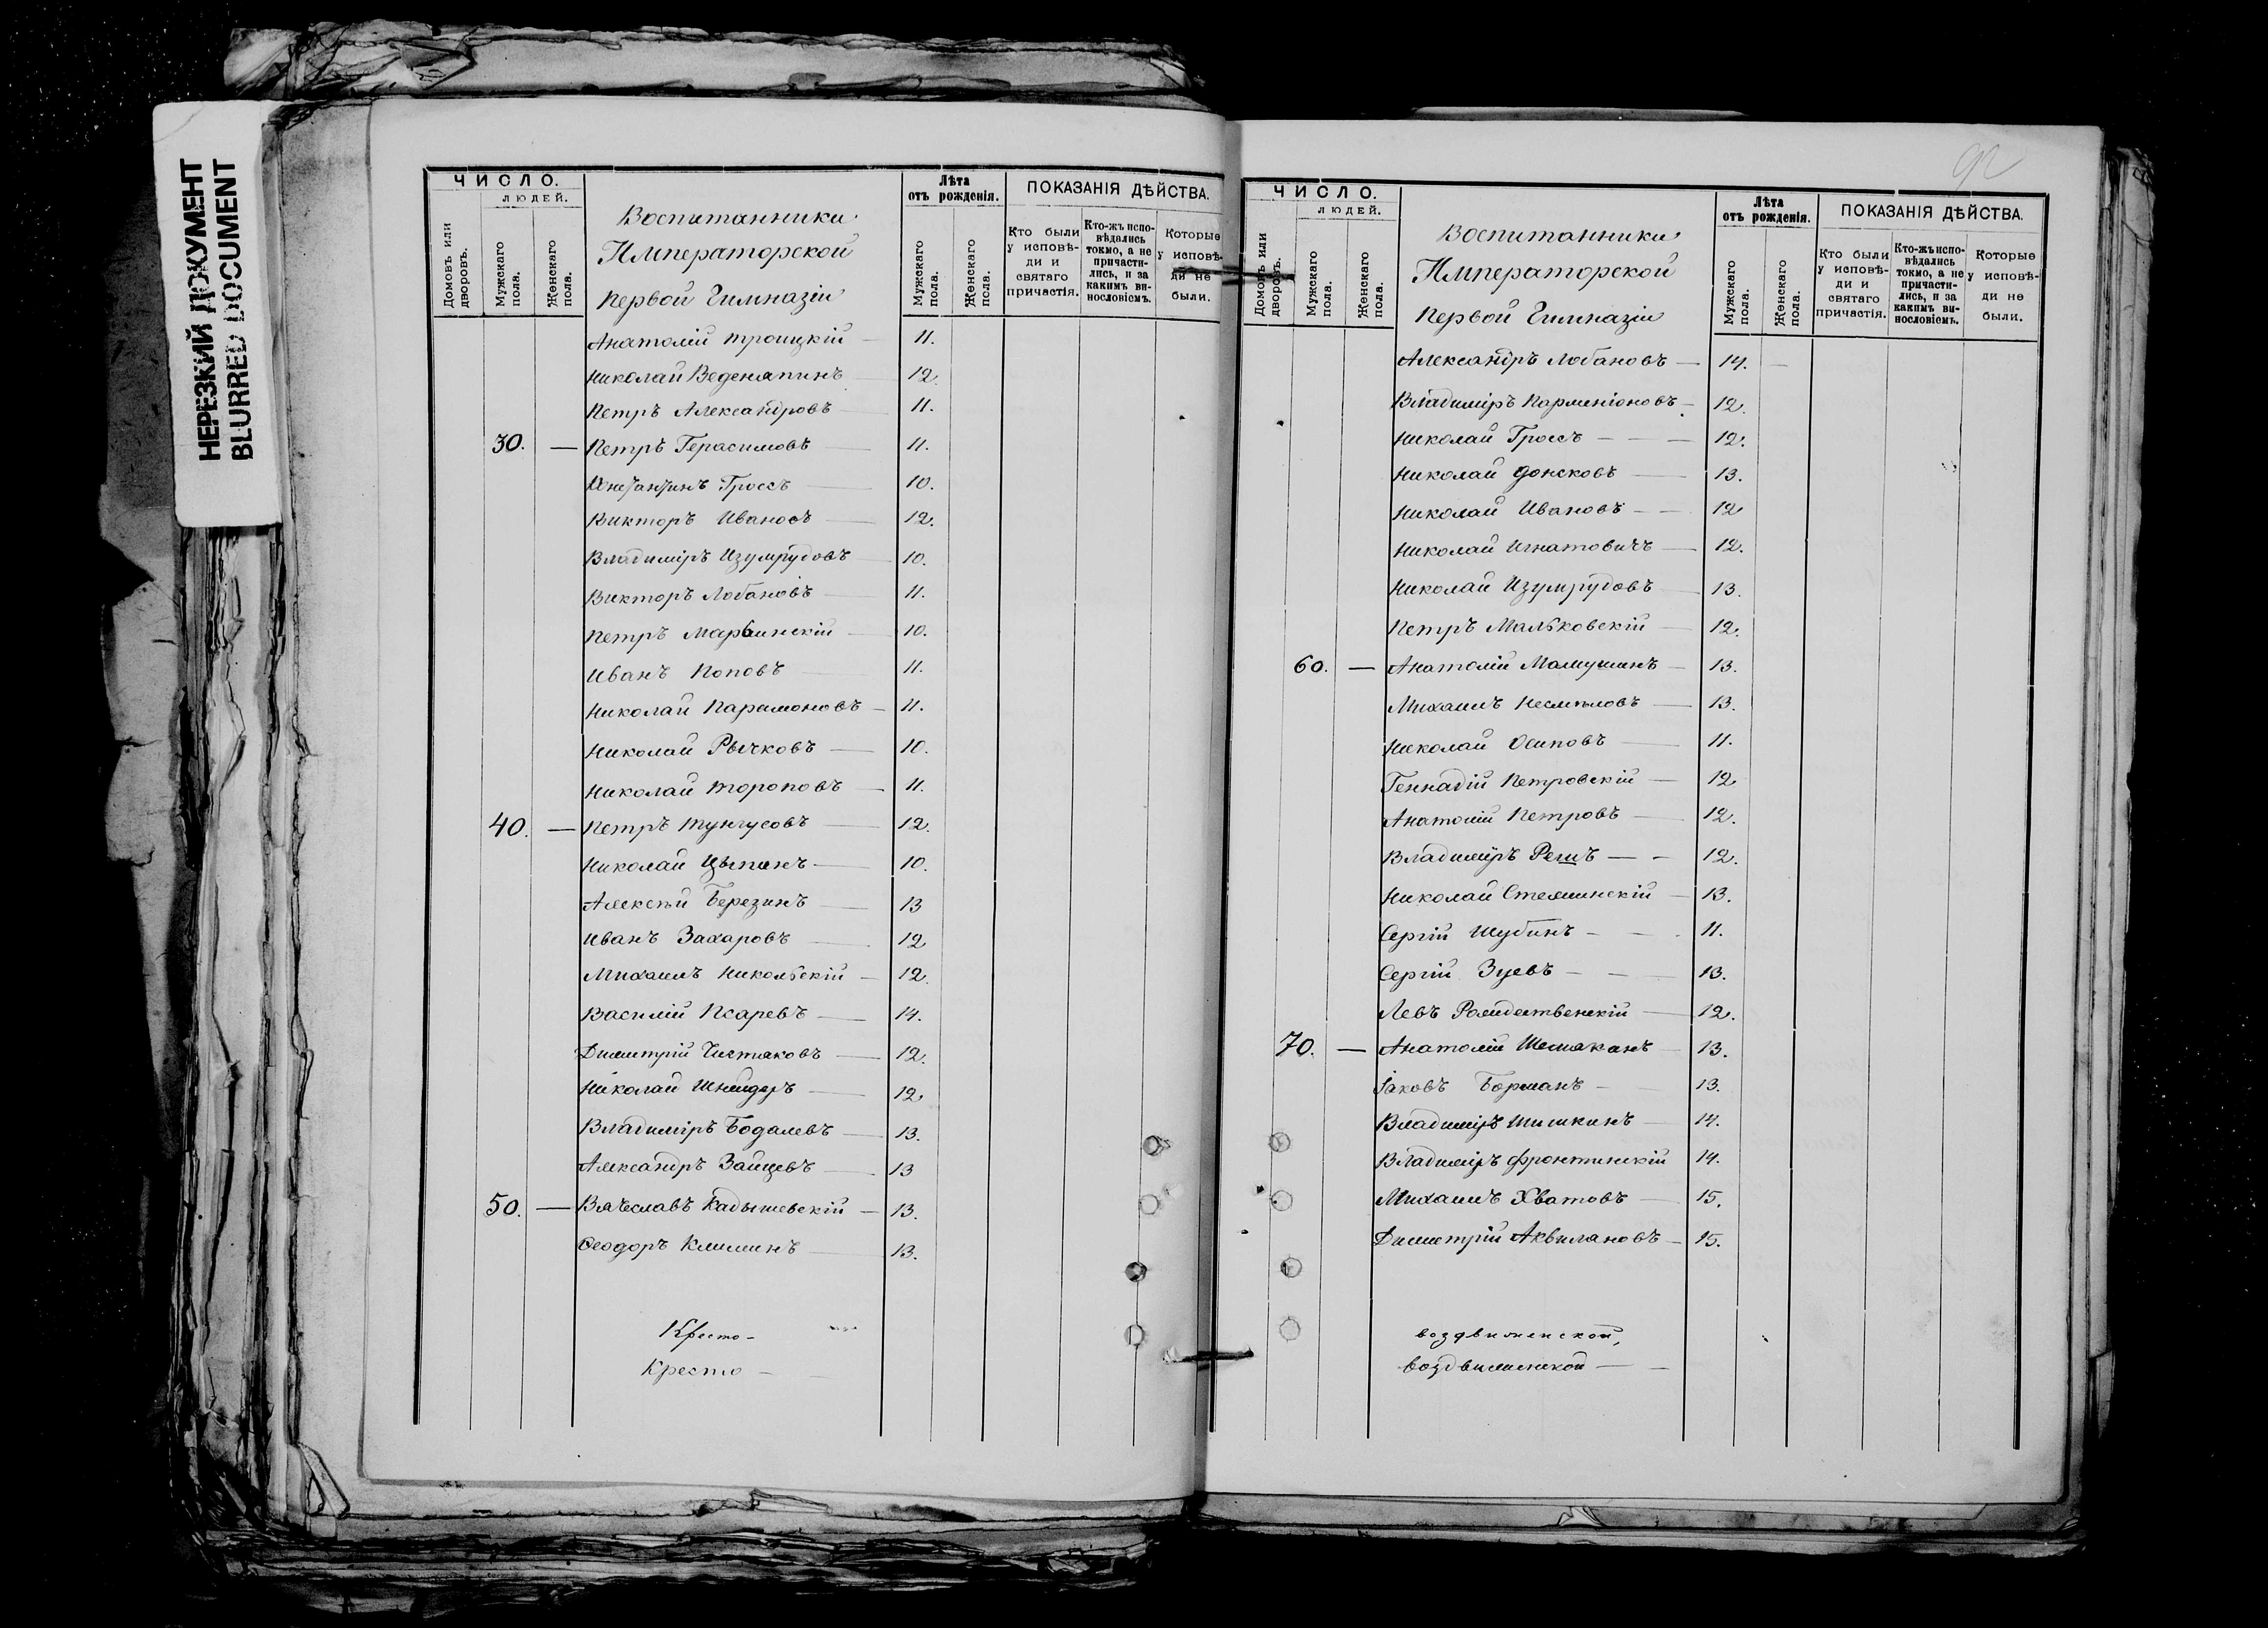 НЕРЕЗКИЙ ДОКУМЕНТ
BLURRED DOCUMENT
ЧИСЛО.
ЛЮДЕЙ.
Домовъ или дворовъ.
Мужскаго пола.
Женскаго пола.
Воспитанники
Императорской
Первой Гимназіи
Лѣта
отъ рожденія.
Мужскаго пола.
Женскаго пола.
ПОКАЗАНІЯ ДѢЙСТВА.
Кто были у исповѣ-ди и святаго причастія.
Кто-жъ испо-вѣдались токмо, а не причасти-лись, и за какимъ ви-нословіемъ.
Которые у исповѣ-ди не были.
Анатолій Троицкій — 11.
Николай Веденяпинъ 12.
Петръ Александровъ 11.
30. — Петръ Герасимовъ 11.
Константинъ Гроссъ — 10.
Викторъ Ивановъ 12.
Владиміръ Изумрудовъ 10.
Викторъ Лобановъ — 11.
Петръ Марвинскій — 10.
Иванъ Поповъ 11.
Николай Парамоновъ — 11.
Николай Рычковъ — 10.
Николай Тороповъ — 11.
40. — Петръ Тунгусовъ — 12.
Николай Цыпинъ — 10.
Алексѣй Березинъ — 13
Иванъ Захаровъ — 12
Михаилъ Никольскій — 12.
Василій Псаревъ — 14.
Димитрій Чистяковъ — 12.
Николай Шнейдеръ — 12.
Владиміръ Бодалевъ — 13.
Александръ Зайцевъ — 13
50. — Вячеславъ Кадышевскій — 13.
Ѳеодоръ Климинъ 13.
Кресто-
Кресто —
92
ЧИСЛО.
ЛЮДЕЙ.
Домовъ или дворовъ.
Мужскаго пола.
Женскаго пола.
Воспитанники
Императорской
Первой Гимназіи
Лѣта
отъ рожденія.
Мужскаго пола.
Женскаго пола.
ПОКАЗАНІЯ ДѢЙСТВА.
Кто были у исповѣ-ди и святаго причастія.
Кто-жъ испо-вѣдались токмо, а не причасти-лись, и за какимъ ви-нословіемъ.
Которые у исповѣ-ди не были.
Александръ Лобановъ — 14. —
Владиміръ Парменіоновъ — 12.
Николай Гроссъ — — — 12.
Николай Донсковъ — 13.
Николай Ивановъ — — 12
Николай Игнатовичъ — 12.
Николай Изумрудовъ 13.
Петръ Мальковскій — 12.
60. — Анатолій Мамушинъ — 13.
Михаилъ Несмѣловъ — 13.
Николай Осиповъ — 11.
Геннадій Петровскій — 12
Анатолій Петровъ — 12.
Владиміръ Решъ — — 12.
Николай Стеминскій — 13.
Сергій Шубинъ — — 11.
Сергій Зуевъ — — 13.
Левъ Рождественскій — 12.
70. — Анатолій Шешаканъ 13.
Іаковъ Борманъ — 13.
Владиміръ Шишкинъ — 14.
Владиміръ Фронтинскій 14.
Михаилъ Хватовъ — 15.
Димитрій Аквилановъ — 15.
воздвиженской,
воздвиженской — —